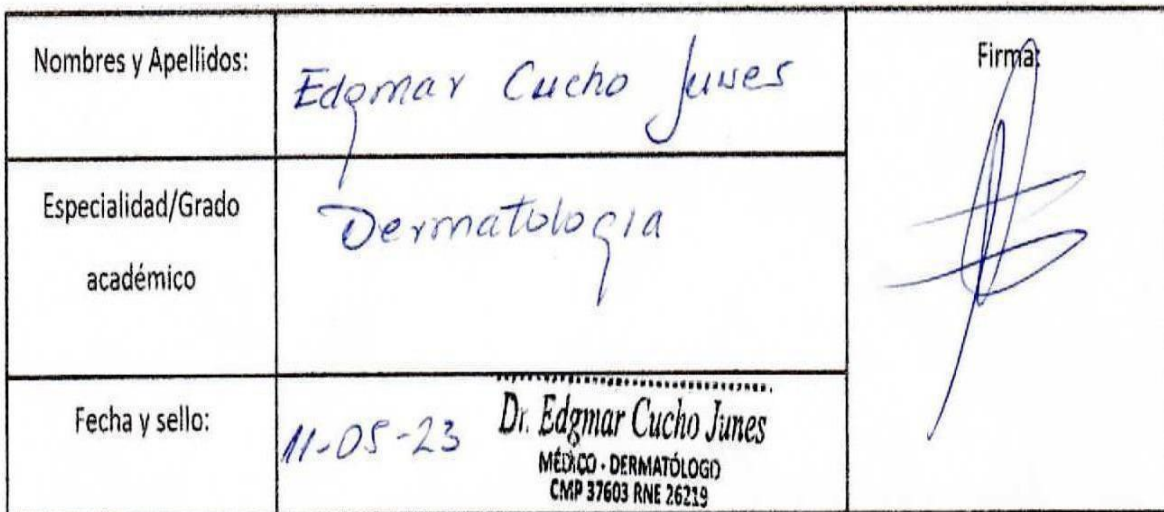 Nombres y Apellidos:
Edgmar Cucho Junes
Firma:
Especialidad/Grado
académico
Dermatologia
Fecha y sello:
11-05-23
Dr. Edgmar Cucho Junes
MÉDICO - DERMATÓLOGO
CMP 37603 RNE 26219